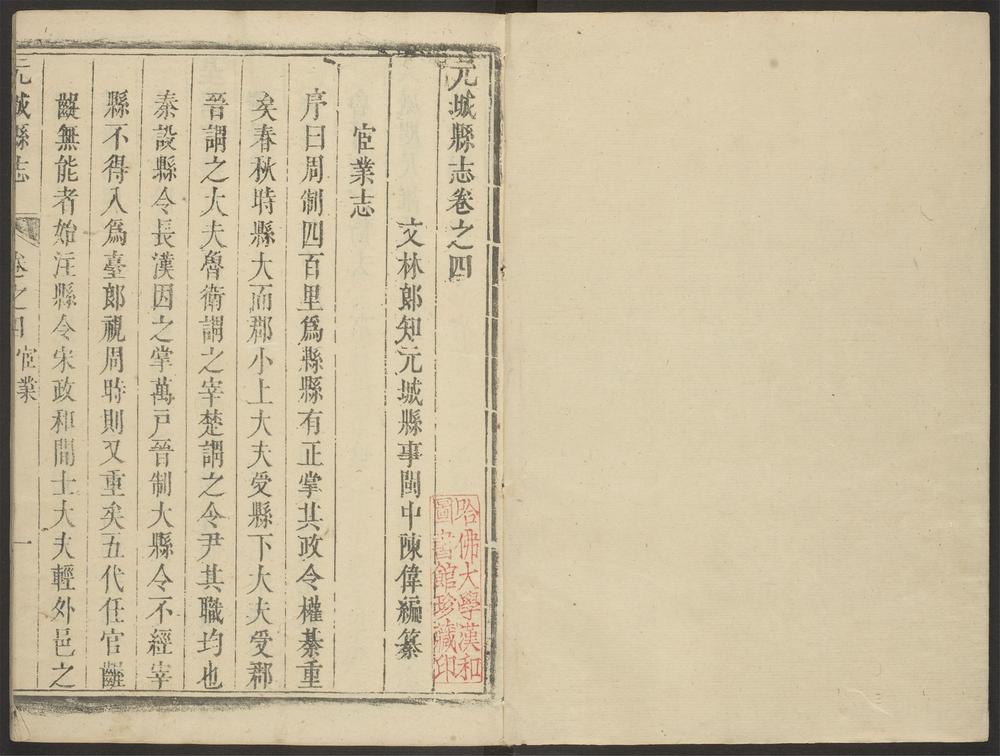 元城縣志卷之四
文林郎知元城縣事閩中陳偉編纂
宦業志
序曰周制四百里爲縣縣有正掌其政令權綦重
矣春秋時縣大而郡小上大夫受縣下大夫受郡
晉謂之大夫魯衛謂之宰楚謂之令尹其職均也
秦設縣令長漢因之掌萬戶晉制大縣令不經宰
縣不得入爲臺郎視周時則又重矣五代任官齷
齪無能者始注縣令宋政和間士大夫輕外邑之
元城縣志
卷之四 宦業
一
哈佛大學漢和
圖書館珍藏印